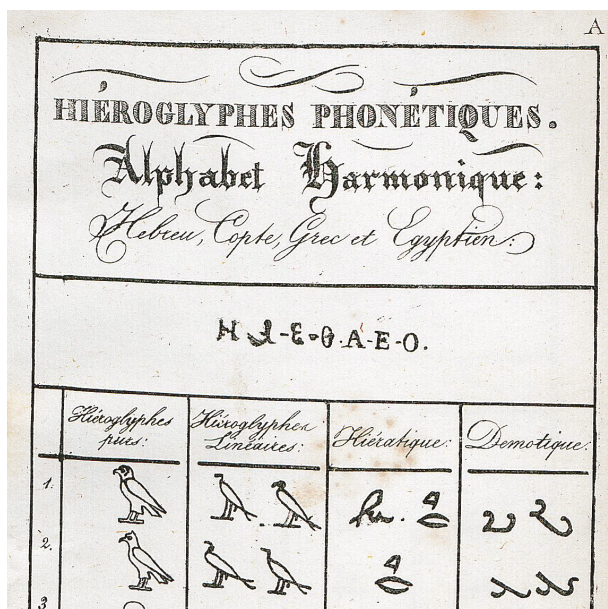 A
HIÉROGLYPHES PHONÉTIQUES.
Alphabet Harmonique:
Hebreu, Copte, Grec et Egyptien:
A-E-O.
Hiéroglyphes purs:
Hiéroglyphes Linéaires:
Hiératique:
Demotique:
1.
2.
3